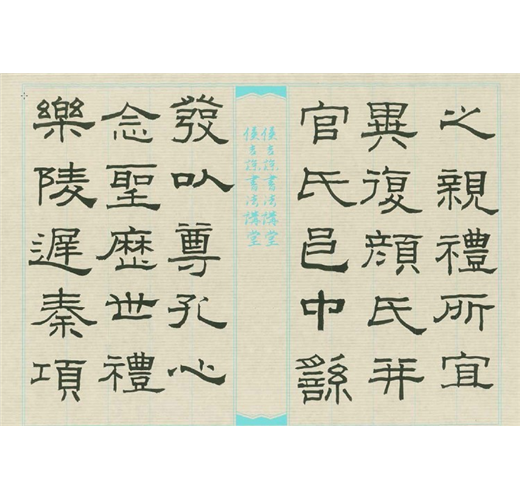 之親禮所宜
異復顏氏并
官氏邑中繇
侯吉諒書法講堂
侯吉諒書法講堂
發以尊孔心
念聖歷世禮
樂陵遲秦項